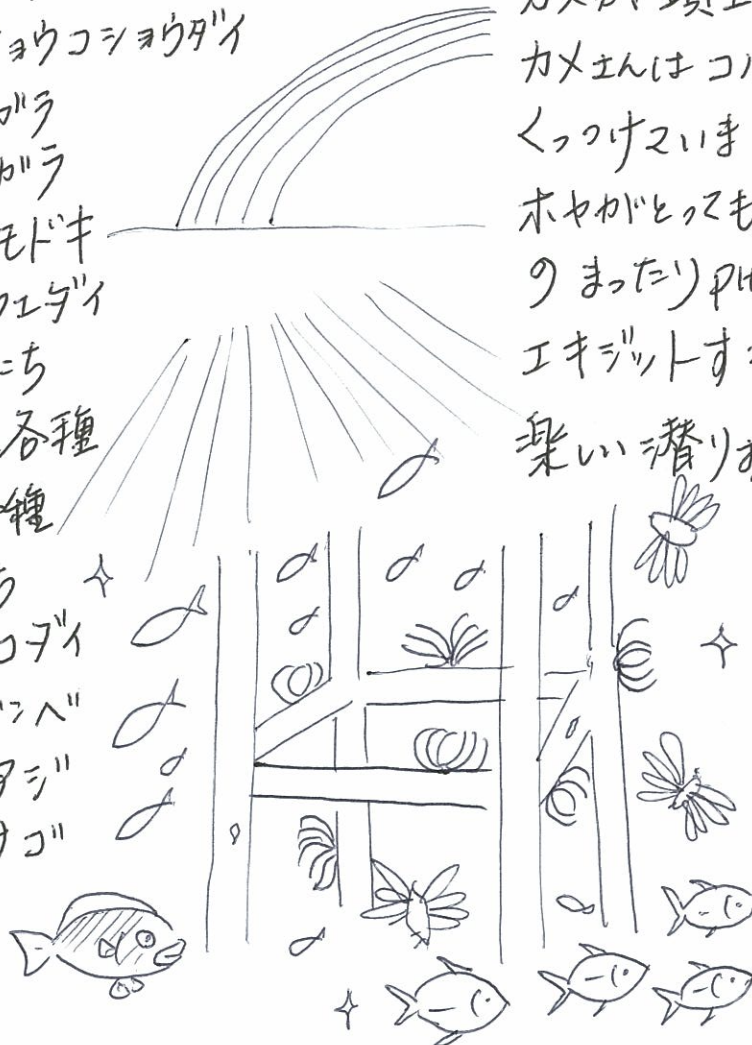 ョウコショウダイ
ガラ
ガラ
モドキ
フエダイ
たち
各種
種
ち
コダイ
ンベ
アジ
サゴ
カメさんは コバ
くっつけていま
ホヤがとっても
の まったり PH
エキジットす
楽しい潜りお